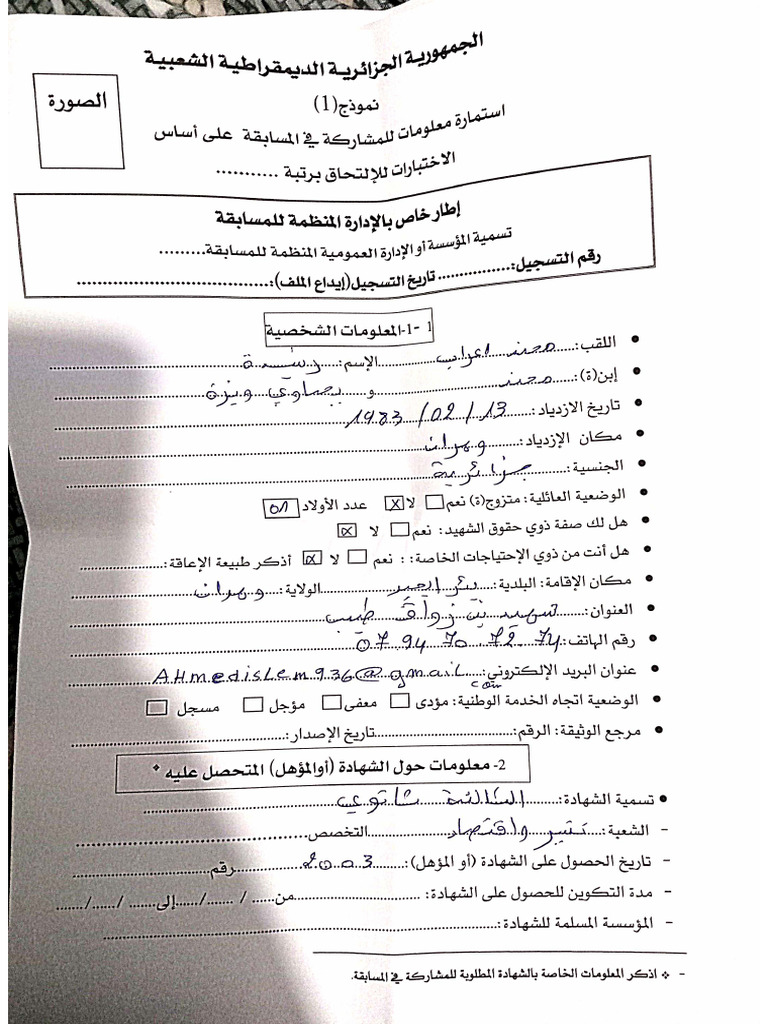 الجمهورية الجزائرية الديمقراطية الشعبية
نموذج(1)
الصورة
استمارة معلومات للمشاركة في المسابقة على أساس
الاختبارات للإلتحاق برتبة ...........
إطار خاص بالإدارة المنظمة للمسابقة
تسمية المؤسسة أو الإدارة العمومية المنظمة للمسابقة.........
رقم التسجيل:............... تاريخ التسجيل(إيداع الملف):....................................
1 -1-المعلومات الشخصية
• اللقب: محند اعراب الإسم: رشدة
• إبن(ة): محند و يحياوي ويزة
• تاريخ الازدياد: 13 / 02 / 1983
• مكان الإزدياد: وهران
• الجنسية: جزائرية
• الوضعية العائلية: متزوج(ة) نعم لا X عدد الأولاد 01
• هل لك صفة ذوي حقوق الشهيد: نعم لا X
• هل أنت من ذوي الإحتياجات الخاصة: : نعم لا X أذكر طبيعة الإعاقة:
• مكان الإقامة: البلدية: بئر الجير الولاية: وهران
• العنوان: طيب
• رقم الهاتف: 07 94 70 72 74
• عنوان البريد الإلكتروني: AHmedislem936@gmail.com
• الوضعية اتجاه الخدمة الوطنية: مؤدى معفى مؤجل مسجل
• مرجع الوثيقة: الرقم: تاريخ الإصدار:
2- معلومات حول الشهادة (أوالمؤهل) المتحصل عليه *
• تسمية الشهادة: الثالثة ثانوي
- الشعبة: تسيير واقتصاد التخصص
- تاريخ الحصول على الشهادة (أو المؤهل): 2003 رقم
- مدة التكوين للحصول على الشهادة: من...... / ....../......إلى...... / ....../......
- المؤسسة المسلمة للشهادة:
- * اذكر المعلومات الخاصة بالشهادة المطلوبة للمشاركة في المسابقة.